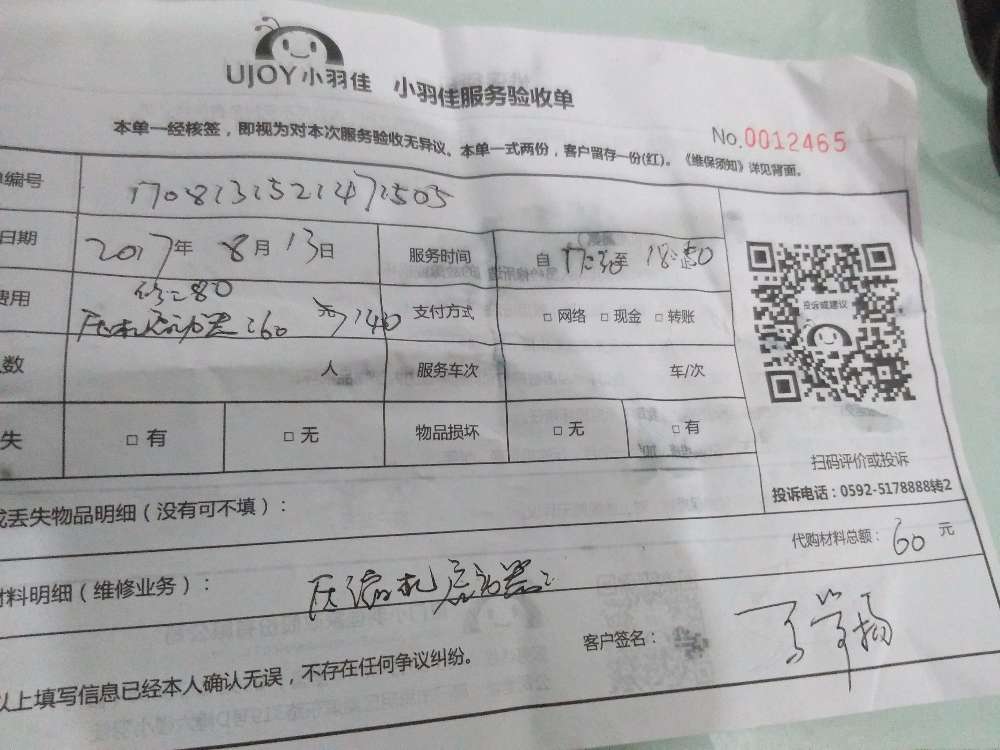 UJOY小羽佳 小羽佳服务验收单
本单一经核签，即视为对本次服务验收无异议。本单一式两份，客户留存一份(红)。《维保须知》详见背面。
No.0012465
编号
日期 2017年 8月13日 服务时间 自 至
费用 修:80
压机启动器:60 支付方式 □ 网络 □ 现金 □ 转账
数 人 服务车次 车/次
失 □ 有 □ 无 物品损坏 □ 无 □ 有
投诉或建议
扫码评价或投诉
投诉电话：0592-5178888转2
丢失物品明细（没有可不填）：
代购材料总额： 60 元
材料明细（维修业务）： 压缩机启动器
客户签名：
以上填写信息已经本人确认无误，不存在任何争议纠纷。